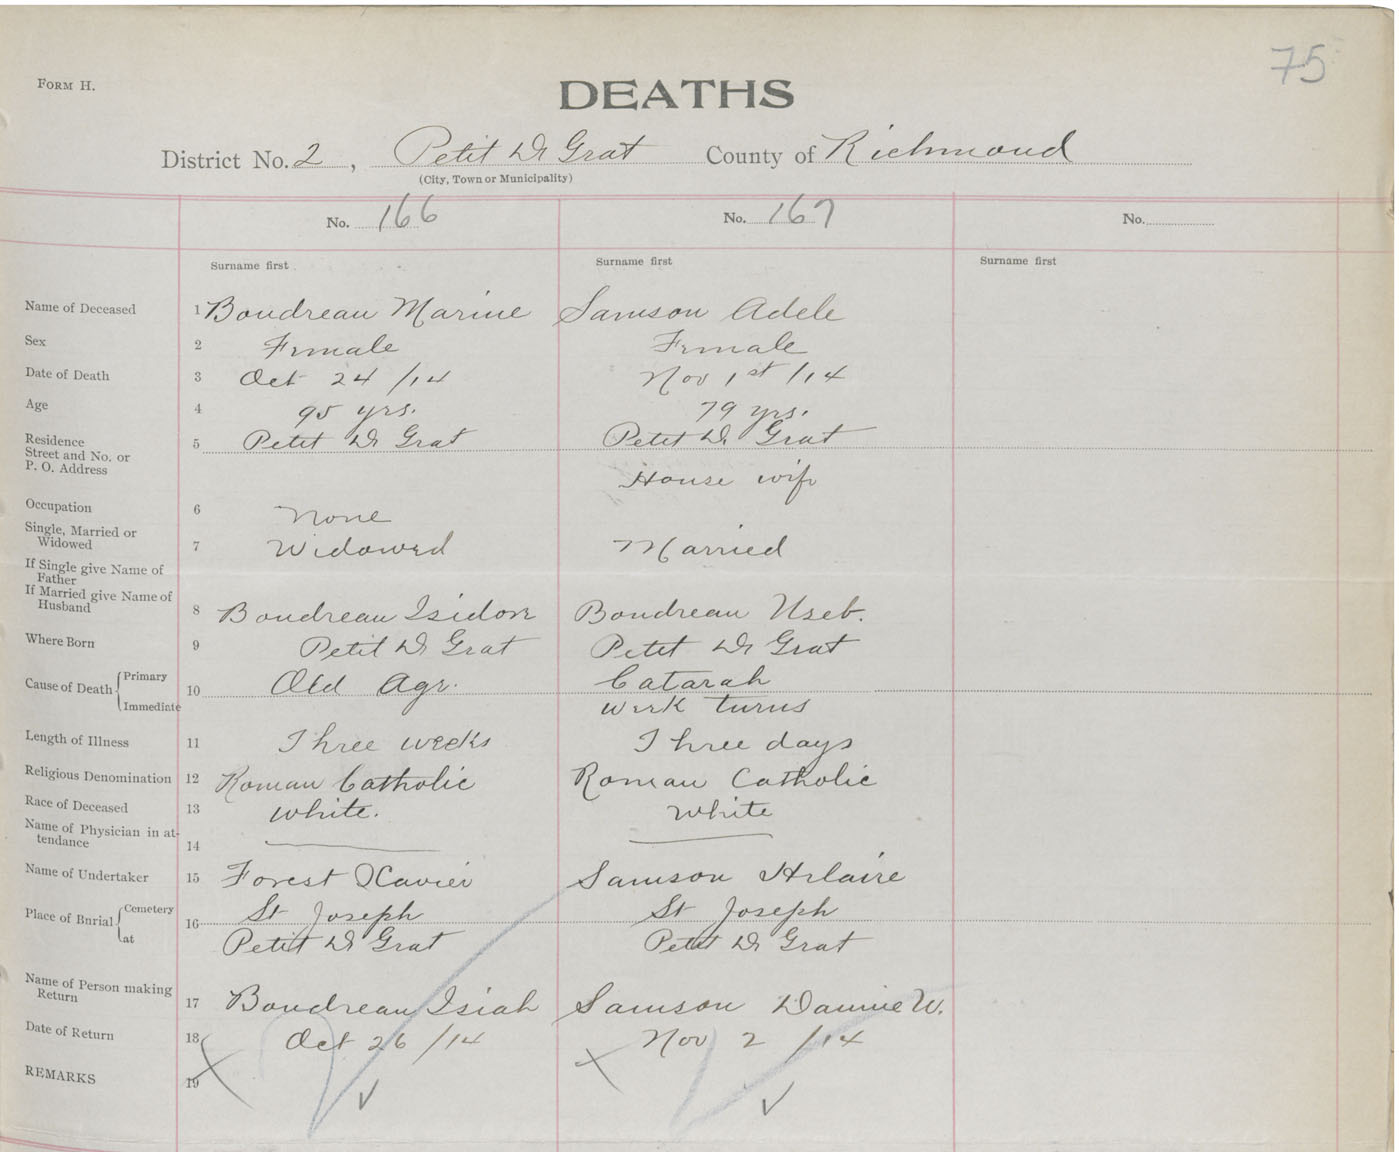 75
FORM H.
DEATHS
District No. 2, Petit De Grat County of Richmond
(City, Town or Municipality)
No. 166 No. 167 No.
Surname first Surname first Surname first
Name of Deceased 1 Boudreau Marine Samson Adele
Sex 2 Female Female
Date of Death 3 Oct 24 /14 Nov 1st /14
Age 4 95 yrs. 79 yrs.
Residence
Street and No. or
P. O. Address 5 Petit De Grat Petit De Grat
House wife
Occupation 6 None
Single, Married or
Widowed 7 Widowed Married
If Single give Name of
Father
If Married give Name of
Husband 8 Boudreau Isidore Boudreau Useb.
Where Born 9 Petit De Grat Petit De Grat
Cause of Death Primary 10 Old Age. Catarah
Immediate werk turns
Length of Illness 11 Three weeks Three days
Religious Denomination 12 Roman Catholic Roman Catholic
Race of Deceased 13 White. White
Name of Physician in at-
tendance 14
Name of Undertaker 15 Forest Xavier Samson Hilaire
Place of Burial Cemetery 16 St Joseph St Joseph
at Petit De Grat Petit De Grat
Name of Person making
Return 17 Boudreau Isiah Samson Dannie W.
Date of Return 18 Oct 26 /14 Nov 2 /14
REMARKS 19